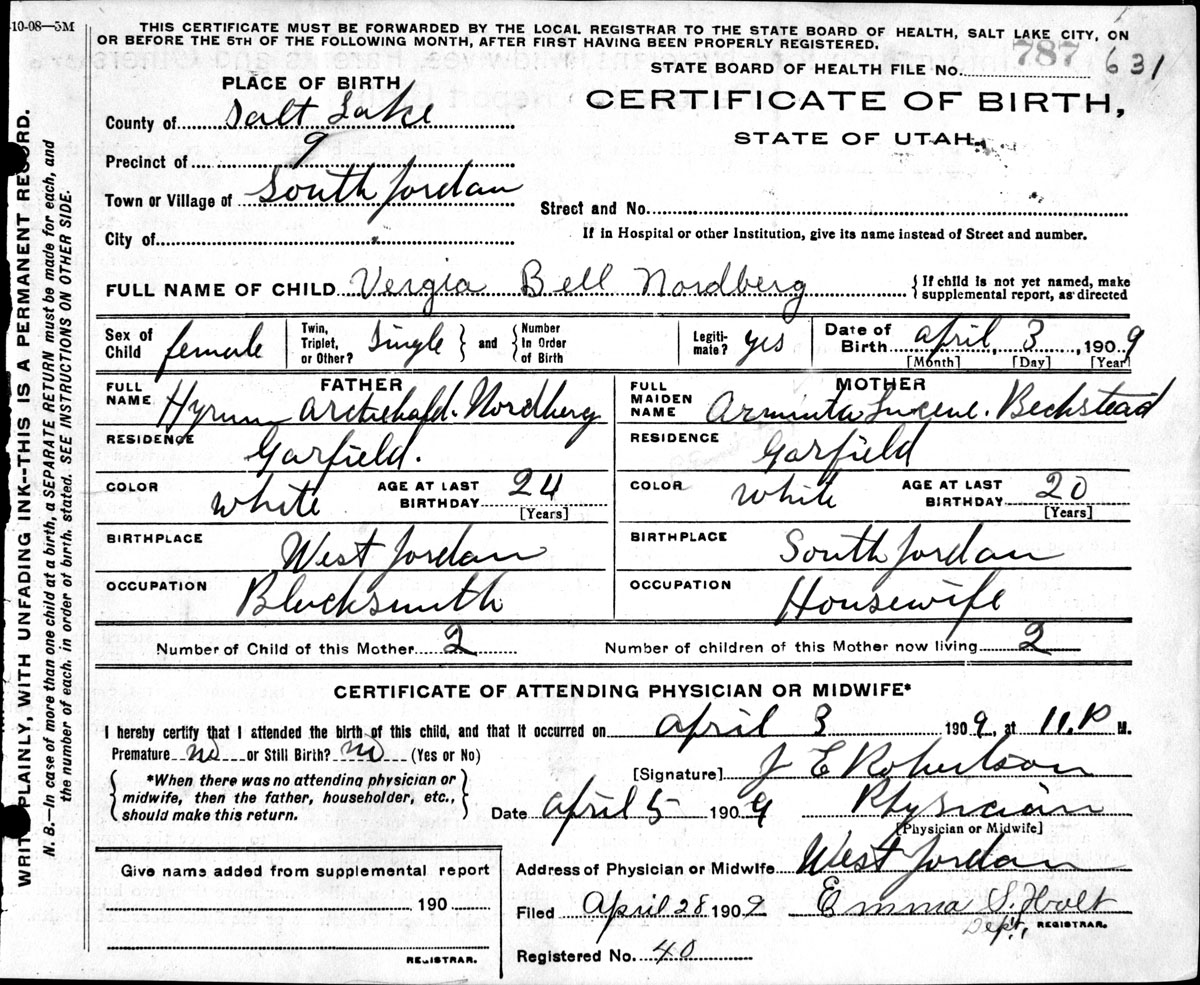 10-08—5M
THIS CERTIFICATE MUST BE FORWARDED BY THE LOCAL REGISTRAR TO THE STATE BOARD OF HEALTH, SALT LAKE CITY, ON
OR BEFORE THE 5TH OF THE FOLLOWING MONTH, AFTER FIRST HAVING BEEN PROPERLY REGISTERED.
STATE BOARD OF HEALTH FILE No. 787 631
PLACE OF BIRTH
CERTIFICATE OF BIRTH,
STATE OF UTAH.
County of Salt Lake
Precinct of 9
Town or Village of South Jordan
City of
Street and No.
If in Hospital or other Institution, give its name instead of Street and number.
FULL NAME OF CHILD Vergia Bell Nordberg
{If child is not yet named, make
supplemental report, as directed
Sex of Child female
Twin, Triplet, or Other? Single } and { Number In Order of Birth
Legiti-mate? yes
Date of Birth april, 3, 1909
[Month] [Day] [Year]
FATHER
FULL NAME Hyrum Archiebald. Nordberg
RESIDENCE Garfield.
COLOR white
AGE AT LAST BIRTHDAY 24
[Years]
BIRTHPLACE West Jordan
OCCUPATION Blacksmith
MOTHER
FULL MAIDEN NAME Arminta Beckstead
RESIDENCE Garfield
COLOR White
AGE AT LAST BIRTHDAY 20
[Years]
BIRTHPLACE South Jordan
OCCUPATION Housewife
Number of Child of this Mother 2
Number of children of this Mother now living 2
CERTIFICATE OF ATTENDING PHYSICIAN OR MIDWIFE*
I hereby certify that I attended the birth of this child, and that it occurred on april 3 1909, at 11.P M.
Premature no or Still Birth? no (Yes or No)
{*When there was no attending physician or
midwife, then the father, householder, etc.,
should make this return.}
[Signature] J E Robertson
Date april 5 1909 Physician
[Physician or Midwife]
Address of Physician or Midwife West Jordan
Filed April 28 1909 Emma S. Holt
Dept. REGISTRAR.
Registered No. 40
Give name added from supplemental report
190
REGISTRAR.
WRITE PLAINLY, WITH UNFADING INK--THIS IS A PERMANENT RECORD.
N. B.—In case of more than one child at a birth, a SEPARATE RETURN must be made for each, and
the number of each, in order of birth, stated. SEE INSTRUCTIONS ON OTHER SIDE.